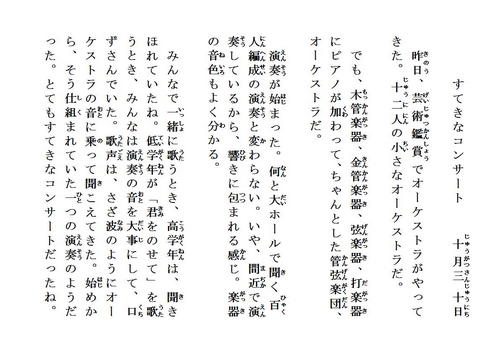 すてきなコンサート　　十月三十日
昨日、芸術鑑賞でオーケストラがやって
きた。十二人の小さなオーケストラだ。
でも、木管楽器、金管楽器、弦楽器、打楽器
にピアノが加わって、ちゃんとした管弦楽団、
オーケストラだ。
演奏が始まった。何と大ホールで聞く百
人編成の演奏と変わらない。いや、間近で演
奏しているから、響きに包まれる感じ。楽器
の音色もよく分かる。
みんなで一緒に歌うとき、高学年は、聞き
ほれていたね。低学年が「君をのせて」を歌
うとき、みんなは演奏の音を大事にして、口
ずさんでいた。歌声は、さざ波のようにオー
ケストラの音に乗って聞こえてきた。始めか
ら、そう仕組まれていた一つの演奏のようだ
った。とてもすてきなコンサートだったね。